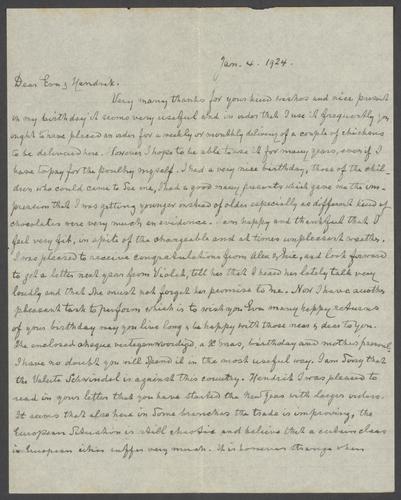 Jan. 4. 1924.
Dear Eva & Hendrik.
Very many thanks for your kind wishes and nice present
on my birthday it seems very useful and in order that I use it frequently you
ought to have placed an order for a weekly or monthly delivery of a couple of chickens
to be delivered here. However I hope to be able to use it for many years, even if I
have to pay for the poultry myself. I had a very nice birthday, those of the chil-
dren who could come to see me, I had a good many presents which gave me the im-
pression that I was getting younger instead of older especially as different kind of
chocolates were very much in evidence. I am happy and thankful that I
feel very fit, in spite of the changeable and at times unpleasant weather.
I was pleased to receive congratulations from Alex & and look forward
to get a letter next year from Violet, tell her that I heard her lately talk very
loudly and that she must not forget her promise to me. Now I have another
pleasant task to perform which is to wish you Eva many happy returns
of your birthday may you live long & be happy with those near & dear to you.
The enclosed cheque vertegenwoordigd a X mas, birthday and mother present.
I have no doubt you will spend it in the most useful way. I am sorry that
the Valuta Schwindel is against this country. Hendrik I was pleased to
read in your letter that you have started the New Year with larger orders.
It seems that also here in some branches the trade is improving, the
European Situation is still chaotic and believe that a certain class
in European cities suffer very much. It is however strange when